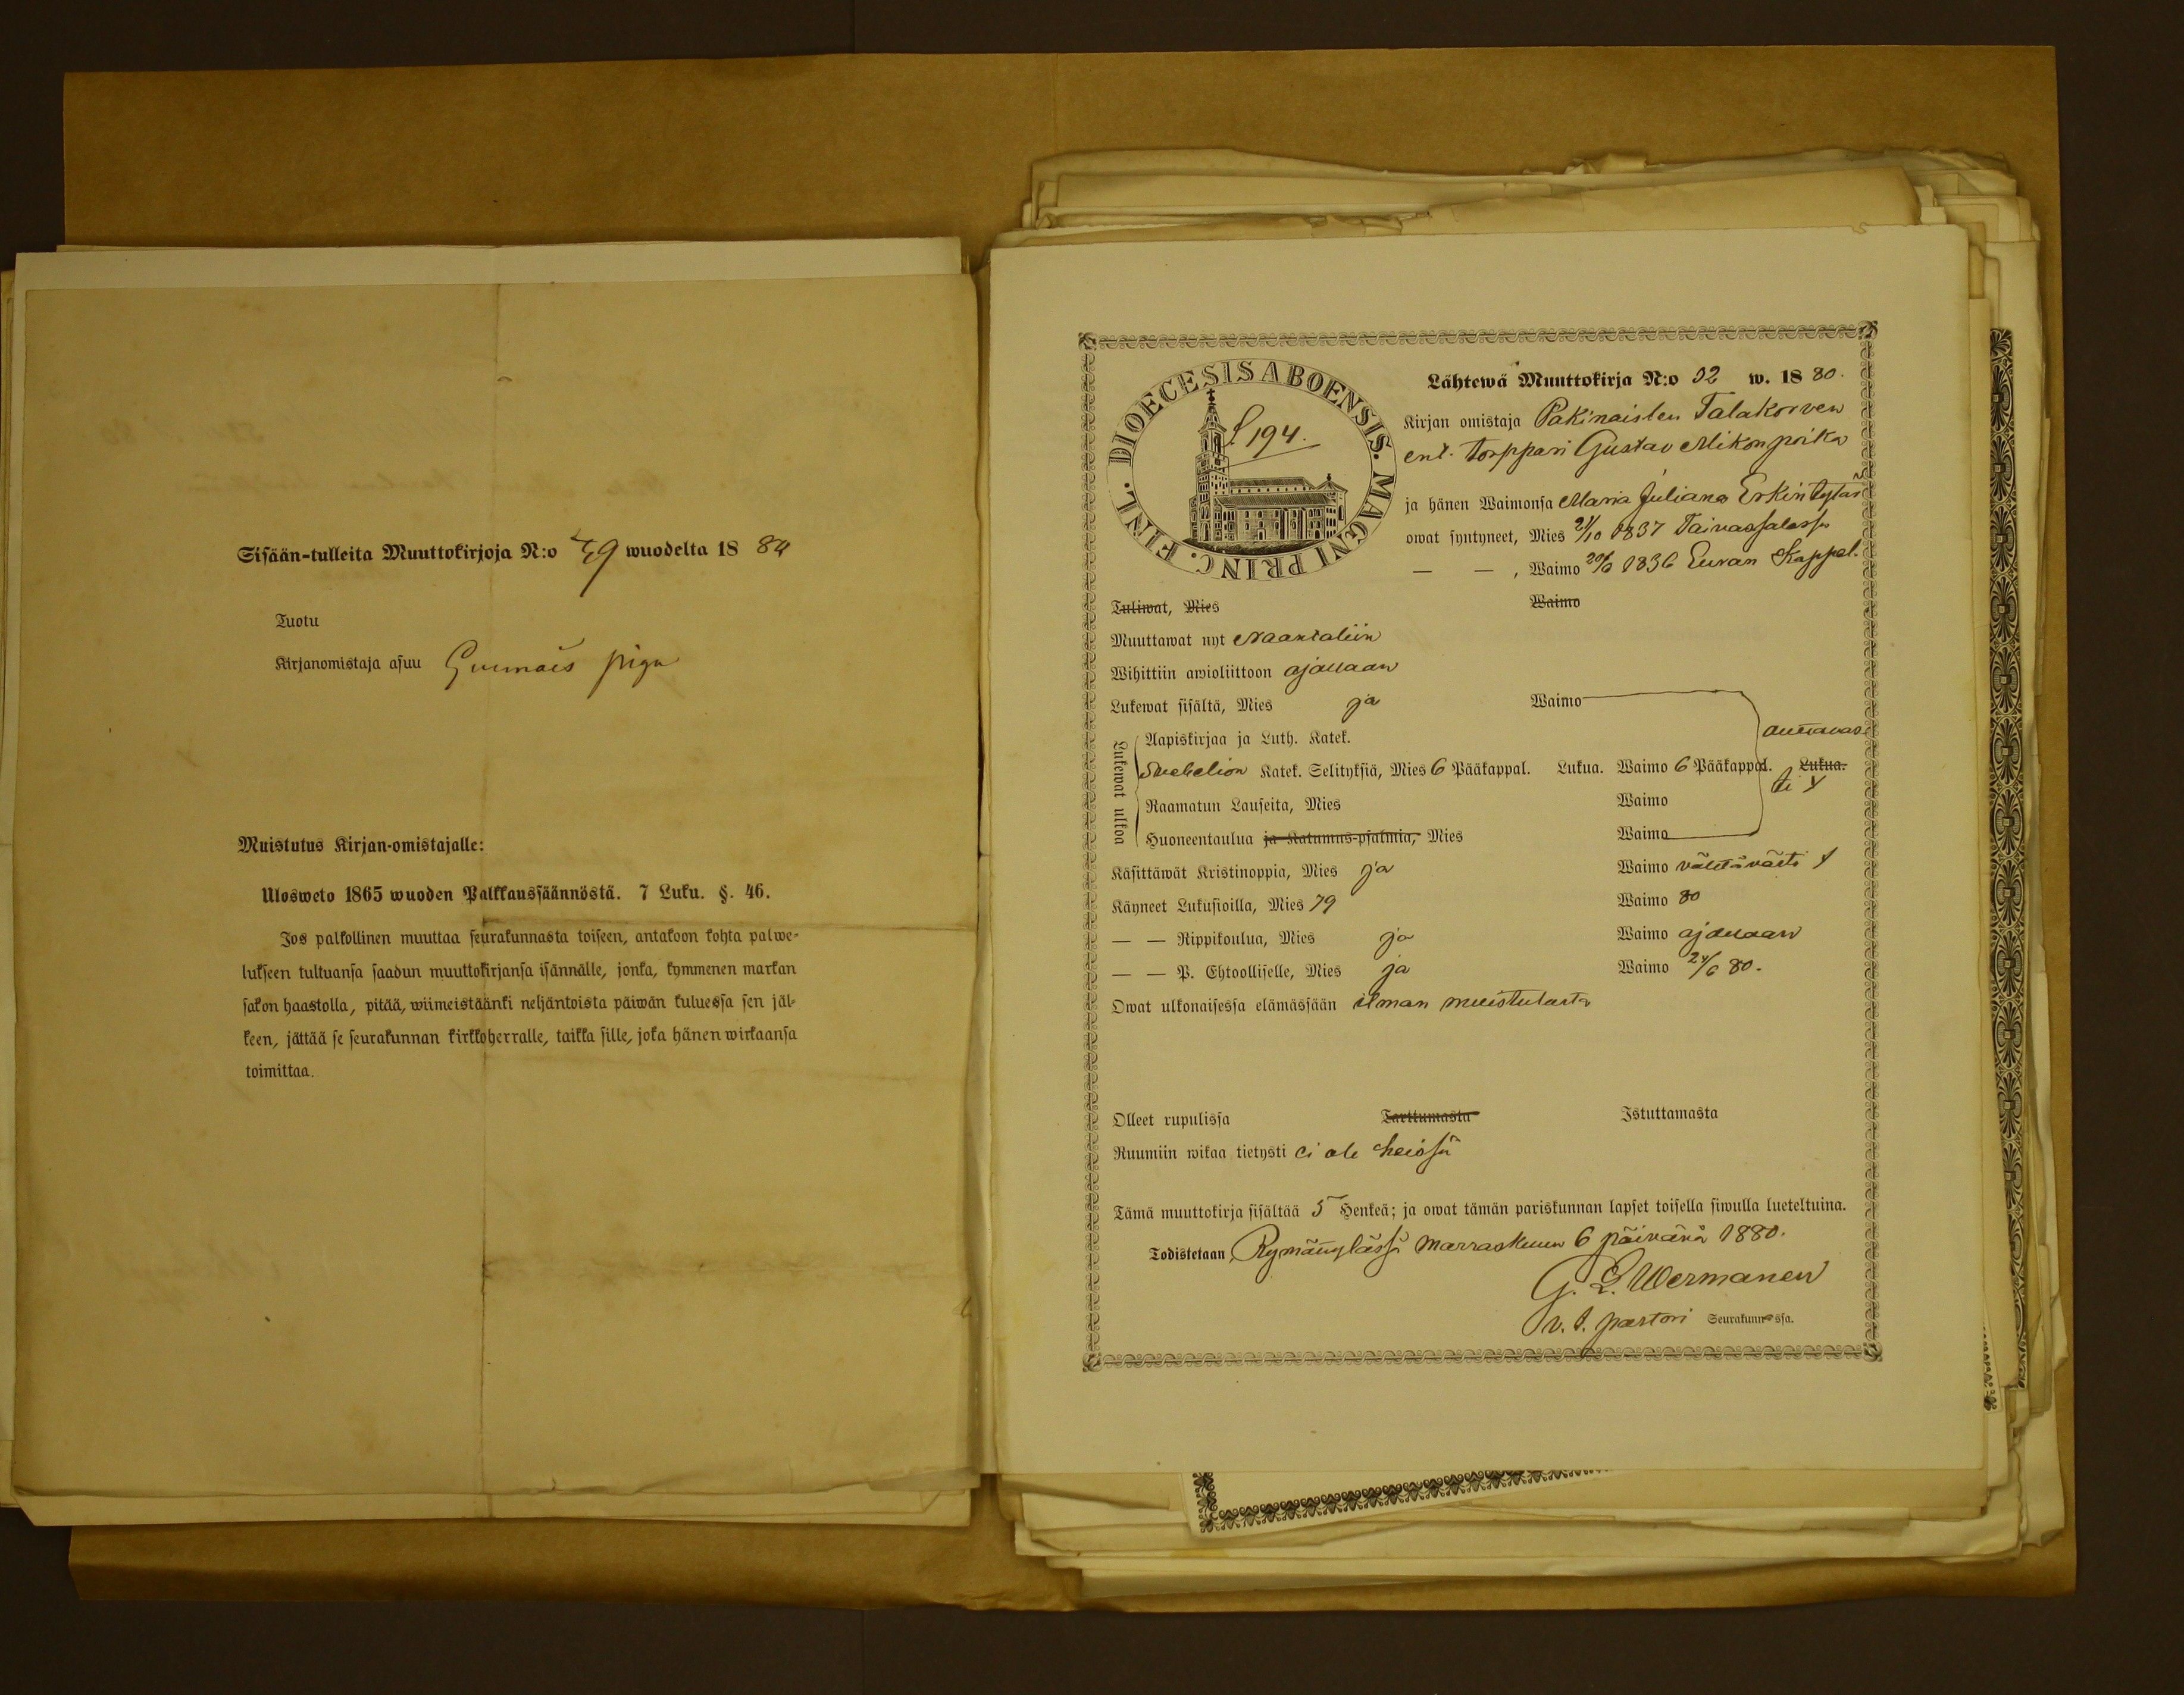 Sisään-tulleita Muuttokirjoja N:o 49 wuodelta 18 80
Tuotu
Kirjanomistaja asuu piga
Muistutus Kirjan-omistajalle:
Ulosweto 1865 wuoden Palkkaussäännöstä. 7 Luku. §. 46.
Jos palkollinen muuttaa seurakunnasta toiseen, antakoon kohta palwe-
lukseen tultuansa saadun muuttokirjansa isännälle, jonka, kymmenen markan
sakon haastolla, pitää, wiimeistäänki neljäntoista päiwän kuluessa sen jäl-
keen, jättää se seurakunnan kirkkoherralle, taikka sille, joka hänen wirkaansa
toimittaa.
DIOECESIS ABOENSIS. MAGNI PRINC. FINL.
194.
Lähtewä Muuttokirja N:o 52 w. 18 80.
Kirjan omistaja Pakinaisten Talakorven
ent. torppari Gustav Mikonpoika
ja hänen Waimonsa Maria Juliana Erkintytär
owat syntyneet, Mies 21/10 1837 Taivassalossa
— — , Waimo 20/6 1836 Euran Kappel.
Tuliwat, Mies Waimo
Muuttawat nyt Naantaliin
Wihittiin awioliittoon ajallaan
Lukewat sisältä, Mies ja Waimo
Lukewat ulkoa
Aapiskirjaa ja Luth. Katek.
Svebelion Katek. Selityksiä, Mies 6 Pääkappal. Lukua. Waimo 6 Pääkappal. Lukua.
Raamatun Lauseita, Mies Waimo
Huoneentaulua ja Katumus-psalmia, Mies Waimo
Käsittäwät Kristinoppia, Mies ja Waimo välttävästi
Käyneet Lukusioilla, Mies 79 Waimo 80
— — Rippikoulua, Mies ja Waimo ajallaan
— — P. Ehtoolliselle, Mies ja Waimo 24/6 80.
Owat ulkonaisessa elämässään ilman muistutusta
Olleet rupulissa Tarttumasta Istuttamasta
Ruumiin wikaa tietysti ei ole heissä
Tämä muuttokirja sisältää 5 Henkeä; ja owat tämän pariskunnan lapset toisella siwulla lueteltuina.
Todistetaan, Rymättylässä Marraskuun 6 päivänä 1880.
G. L. Wermanen
v. t. pastori Seurakunnassa.